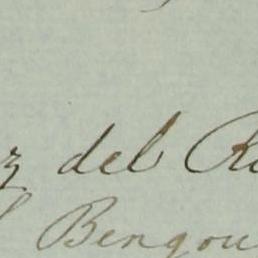 z del R
Bengou